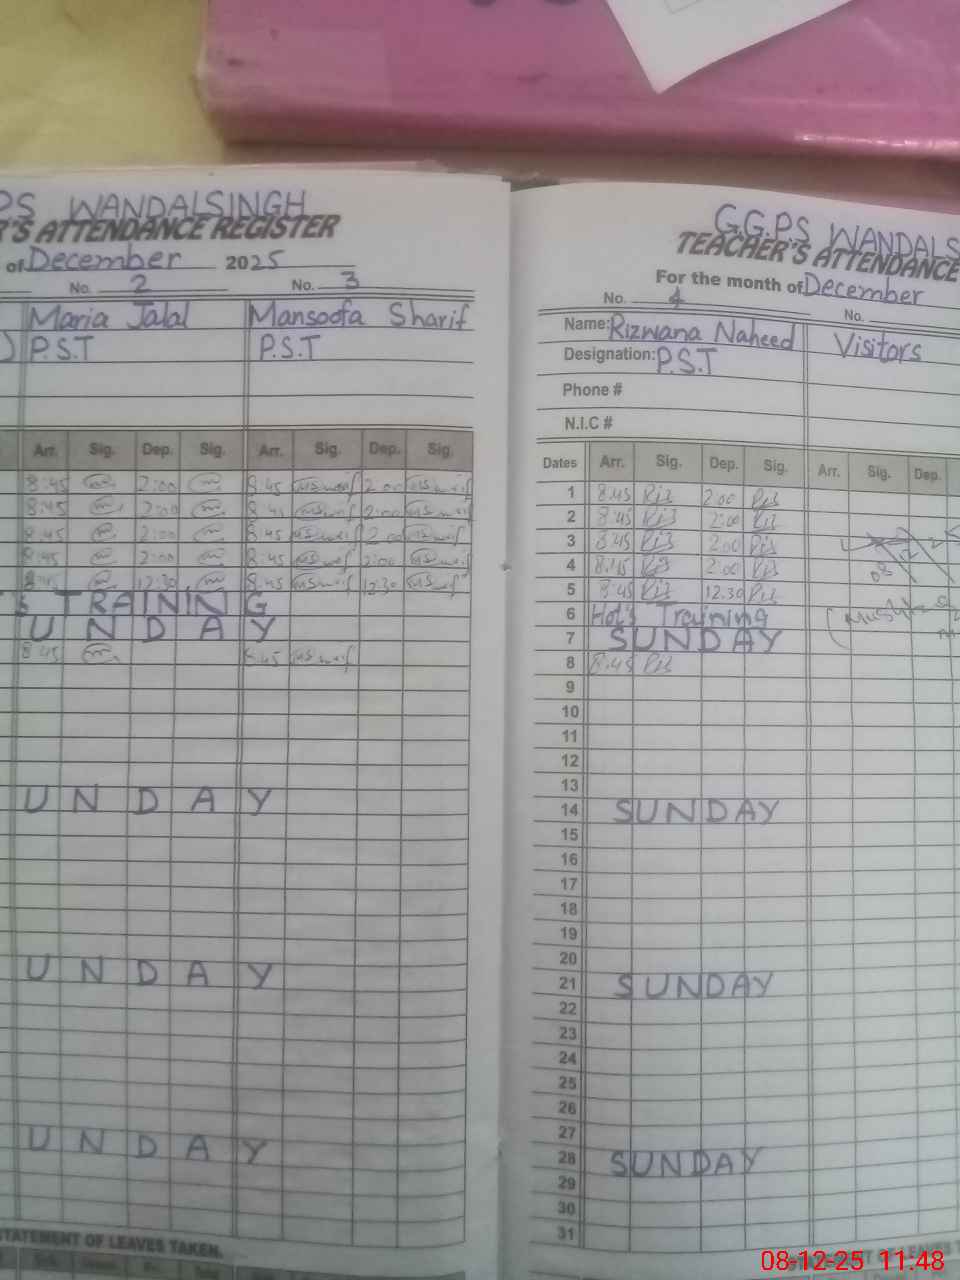 PS WANDALSINGH
R'S ATTENDANCE REGISTER
of December 2025
No. 2 No. 3
Maria Jalal Mansoofa Sharif
P.S.T P.S.T
Arr. Sig. Dep. Sig. Arr. Sig. Dep. Sig.
8:45 2:00 8:45 2:00
8:45 2:00 8:45 2:00
8:45 2:00 8:45 2:00
8:45 2:00 8:45 2:00
8:45 12:30 8:45 12:30
S TRAINING
UNDAY
8:45 8:45
UNDAY
UNDAY
UNDAY
STATEMENT OF LEAVES TAKEN.
G.G.P.S WANDALS
TEACHER'S ATTENDANCE
For the month of December
No. 4 No.
Name: Rizwana Naheed Visitors
Designation: P.S.T
Phone #
N.I.C #
Dates Arr. Sig. Dep. Sig. Arr. Sig. Dep.
1 8:45 Riz 2:00 Riz
2 8:45 Riz 2:00 Riz
3 8:45 Riz 2:00 Riz
4 8:45 Riz 2:00 Riz
5 8:45 Riz 12.30 Riz
6 Hot's Training
7 SUNDAY
8 8:45 Riz
9
10
11
12
13
14 SUNDAY
15
16
17
18
19
20
21 SUNDAY
22
23
24
25
26
27
28 SUNDAY
29
30
31
OF LEAVES
08-12-25 11:48